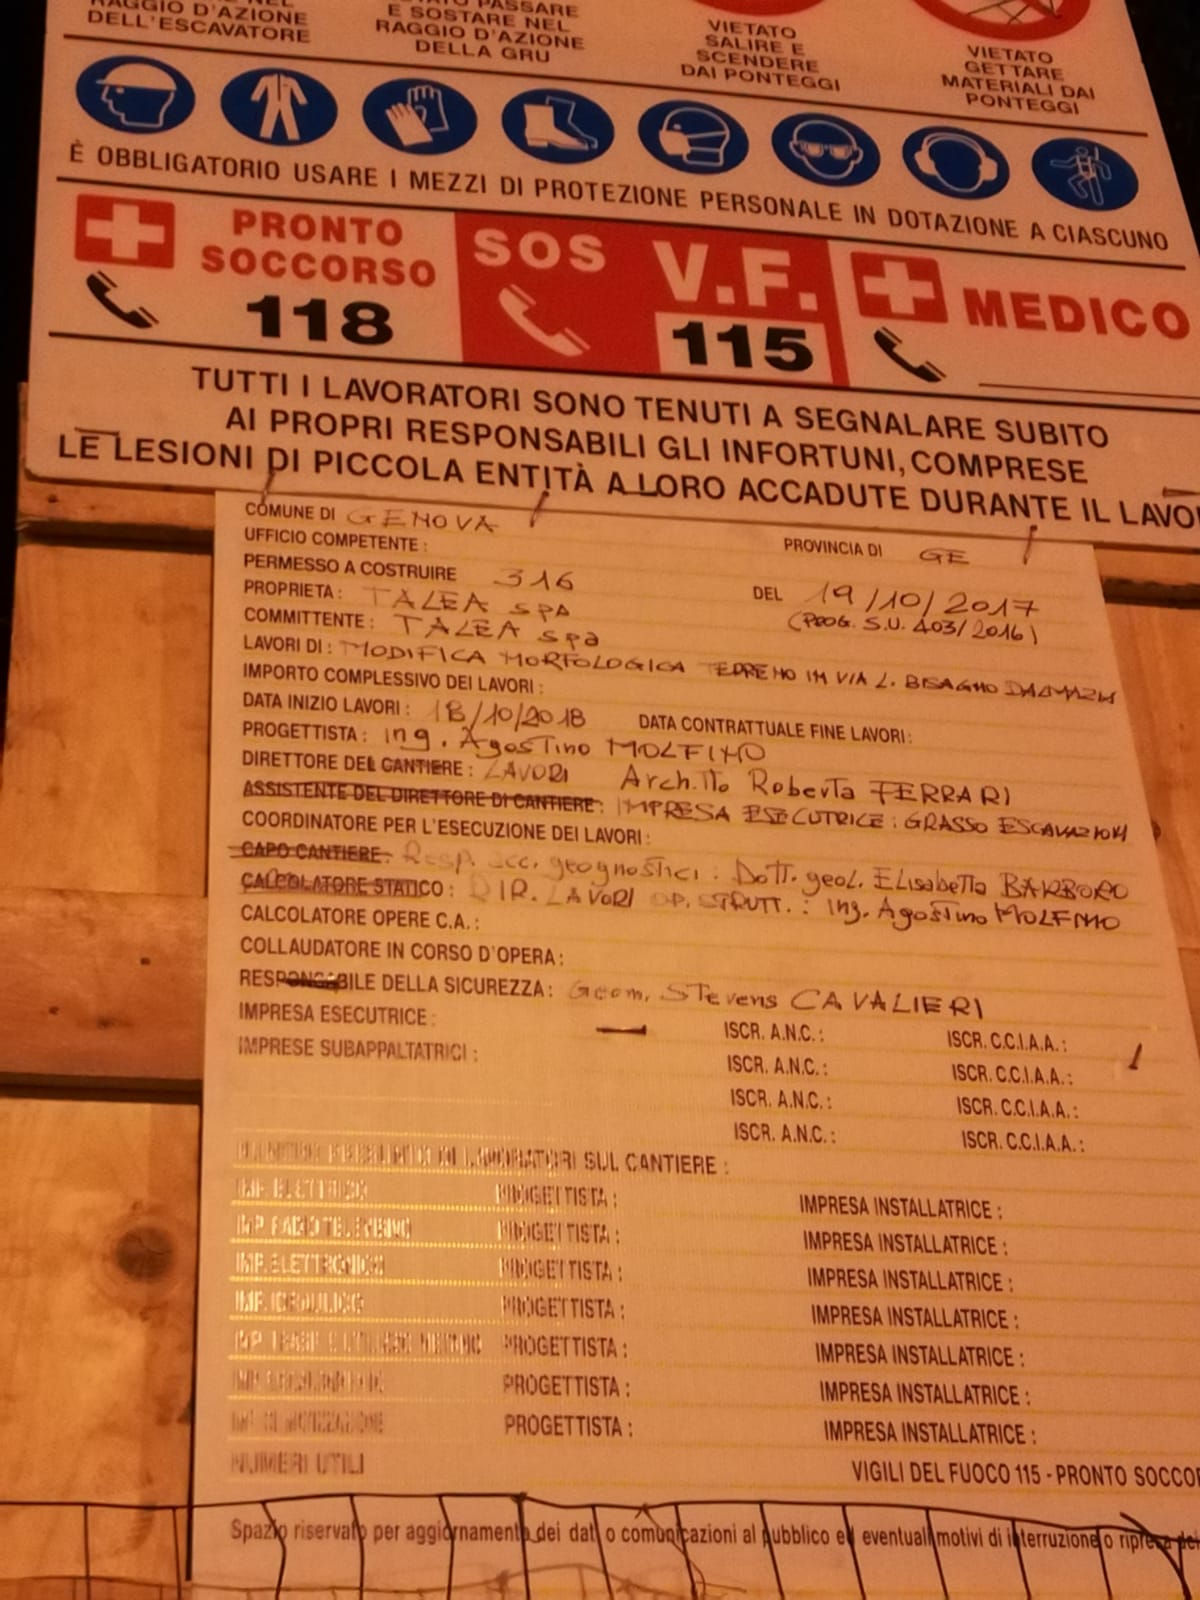 RAGGIO D'AZIONE
DELL'ESCAVATORE
PASSARE
E SOSTARE NEL
RAGGIO D'AZIONE
DELLA GRU
VIETATO
SALIRE E
SCENDERE
DAI PONTEGGI
VIETATO
GETTARE
MATERIALI DAI
PONTEGGI
È OBBLIGATORIO USARE I MEZZI DI PROTEZIONE PERSONALE IN DOTAZIONE A CIASCUNO
PRONTO
SOCCORSO
118
SOS V.F.
115
MEDICO
TUTTI I LAVORATORI SONO TENUTI A SEGNALARE SUBITO
AI PROPRI RESPONSABILI GLI INFORTUNI, COMPRESE
LE LESIONI DI PICCOLA ENTITÀ A LORO ACCADUTE DURANTE IL LAVO
COMUNE DI GENOVA
PROVINCIA DI GE
UFFICIO COMPETENTE :
PERMESSO A COSTRUIRE 316 DEL 19/10/2017
PROPRIETA : TALEA SPA (PROG. S.U. 403/2016)
COMMITTENTE : TALEA spa
LAVORI DI : MODIFICA MORFOLOGICA TERRENO IN VIA L. BISAGNO DALMAZIA
IMPORTO COMPLESSIVO DEI LAVORI :
DATA INIZIO LAVORI : 18/10/2018 DATA CONTRATTUALE FINE LAVORI :
PROGETTISTA : ing. Agostino MOLFINO
DIRETTORE DEL CANTIERE : LAVORI Arch.tto Roberta FERRARI
ASSISTENTE DEL DIRETTORE DI CANTIERE : IMPRESA ESECUTRICE : GRASSO ESCAVAZIONI
COORDINATORE PER L'ESECUZIONE DEI LAVORI :
CAPO CANTIERE : Resp. acc. geognostici : Dott. geol. Elisabetta BARBORO
CALCOLATORE STATICO : DIR. LAVORI OP. STRUTT. : ing. Agostino MOLFINO
CALCOLATORE OPERE C.A. :
COLLAUDATORE IN CORSO D'OPERA :
RESPONSABILE DELLA SICUREZZA : Geom. Stevens CAVALIERI
IMPRESA ESECUTRICE : ISCR. A.N.C. : ISCR. C.C.I.A.A. :
IMPRESE SUBAPPALTATRICI : ISCR. A.N.C. : ISCR. C.C.I.A.A. :
ISCR. A.N.C. : ISCR. C.C.I.A.A. :
ISCR. A.N.C. : ISCR. C.C.I.A.A. :
DI LAVORATORI SUL CANTIERE :
IMP. ELETTRICO PROGETTISTA : IMPRESA INSTALLATRICE :
IMP. RADIOTELEVISIVO PROGETTISTA : IMPRESA INSTALLATRICE :
IMP. ELETTRONICO PROGETTISTA : IMPRESA INSTALLATRICE :
IMP. IDRAULICO PROGETTISTA : IMPRESA INSTALLATRICE :
PROGETTISTA : IMPRESA INSTALLATRICE :
PROGETTISTA : IMPRESA INSTALLATRICE :
PROGETTISTA : IMPRESA INSTALLATRICE :
NUMERI UTILI VIGILI DEL FUOCO 115 - PRONTO SOCCO
Spazio riservato per aggiornamento dei dati o comunicazioni al pubblico ed eventuali motivi di interruzione o ripresa dei